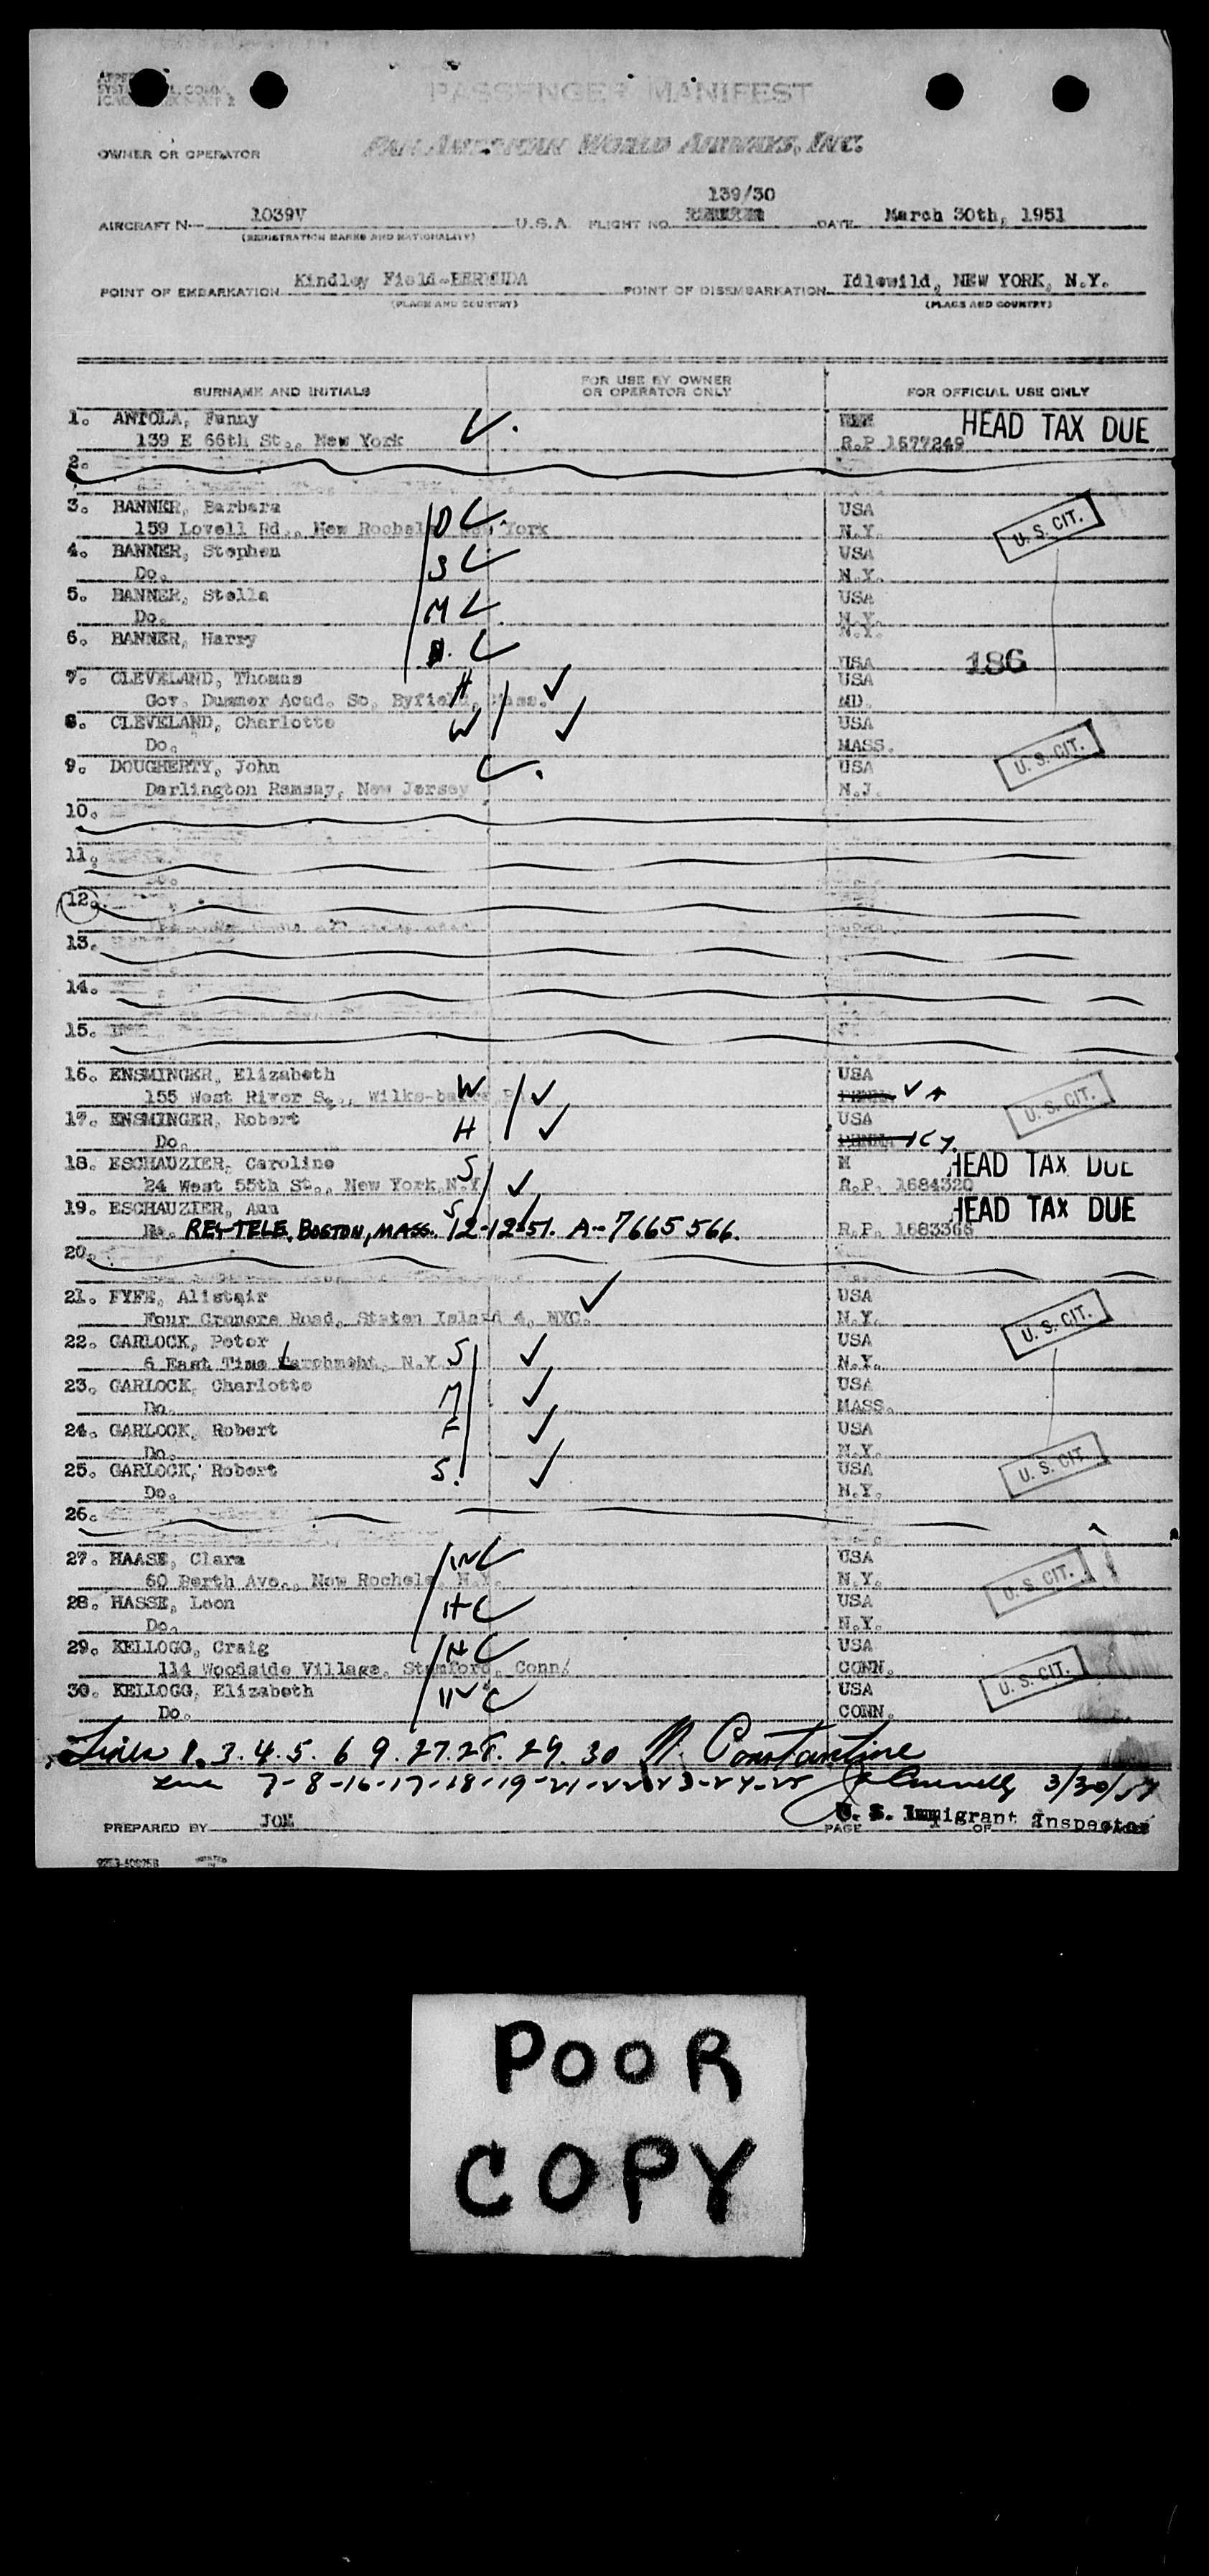 PASSENGER MANIFEST
OWNER OR OPERATOR PAN AMERICAN WORLD AIRWAYS, INC.
139/30
AIRCRAFT N 1039V U.S.A. FLIGHT NO. DATE March 30th, 1951
(REGISTRATION MARKS AND NATIONALITY)
POINT OF EMBARKATION Kindley Field-BERMUDA POINT OF DISEMBARKATION Idlewild, NEW YORK, N.Y.
(PLACE AND COUNTRY) (PLACE AND COUNTRY)
SURNAME AND INITIALS FOR USE BY OWNER OR OPERATOR ONLY FOR OFFICIAL USE ONLY
1. ANTOLA, Fanny HEAD TAX DUE
139 E 66th St., New York R.P 1577249
2.
3. BANNER, Barbara USA
159 Lovell Rd., New Rochel York D N.Y. U. S. CIT.
4. BANNER, Stephen USA
Do. S N.Y.
5. BANNER, Stella USA
Do. M N.Y.
6. BANNER, Harry N.Y.
USA 186
7. CLEVELAND, Thomas H USA
Gov. Dummer Acad. So. Byfield, Mass. MD.
8. CLEVELAND, Charlotte W USA
Do. MASS.
9. DOUGHERTY, John USA U. S. CIT.
Darlington Ramsay, New Jersey N.J.
10.
11.
12.
13.
14.
15.
16. ENSMINGER, Elizabeth W USA
155 West River S., Wilke-barre VA U. S. CIT.
17. ENSMINGER, Robert H USA
Do. KY.
18. ESCHAUZIER, Caroline S N HEAD TAX DUE
24 West 55th St., New York,N.Y R.P. 1684320
19. ESCHAUZIER, Ann S HEAD TAX DUE
RE-TELE, BOSTON, MASS. 12-12-51. A-7665566. R.P. 1683365
20.
21. FYFE, Alistair USA
Four Croners Road, Staten Island 4, NYC. N.Y. U. S. CIT.
22. GARLOCK, Peter USA
6 East Time Larchmont, N.Y S N.Y.
23. GARLOCK, Charlotte USA
Do. M MASS.
24. GARLOCK, Robert F USA
Do. N.Y.
25. GARLOCK, Robert S. USA U. S. CIT
Do. N.Y.
26.
27. HAASE, Clara W USA
60 Perth Ave., New Rochele, N.Y. N.Y. U. S. CIT.
28. HASSE, Leon H USA
Do. N.Y.
29. KELLOGG, Craig H USA
114 Woodside Village, Stamford, Conn/ CONN.
30. KELLOGG, Elizabeth W USA U. S. CIT.
Do. CONN.
Lines 1. 3. 4. 5. 6 9. 27. 28. 29. 30 N. Constantine
Line 7-8-16-17-18-19-21-22-23-24-25 3/30/51
U. S. Immigrant Inspector
PREPARED BY JOM PAGE OF
POOR
COPY